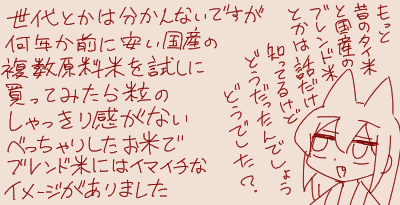 世代とかは分かんないですが
何年か前に安い国産の
複数原料米を試しに
買ってみたら粒の
しゃっきり感がない
べっちゃりしたお米で
ブレンド米にはイマイチな
イメージがありました
もっと
昔のタイ米
と国産の
ブレンド米
とかは話だけ
知ってるけど
どうだったんでしょう
どうでした?